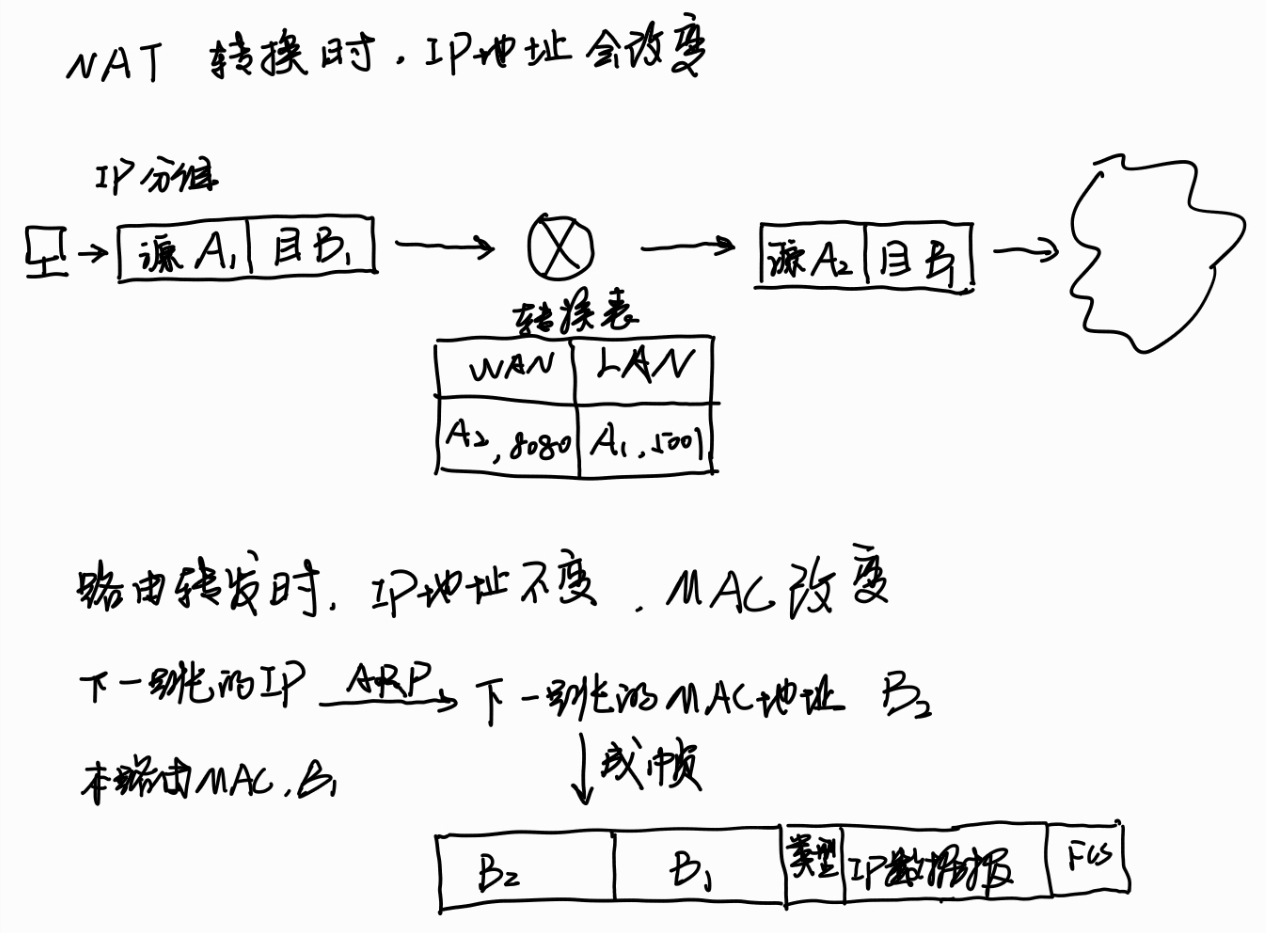 NAT 转换时，IP地址会改变
IP分组
源A₁ 目B₁
源A₂ 目B₁
转换表
WAN LAN
A₂,8080 A₁,5001
路由转发时，IP地址不变，MAC改变
下一跳的IP ARP 下一跳的MAC地址 B₂
本路由MAC，B₁
成帧
B₂ B₁ 类型 IP数据报 FCS